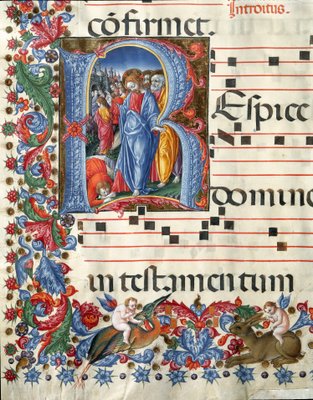 Introitus.
cōfirmet.
REspice
domine
in testamentum